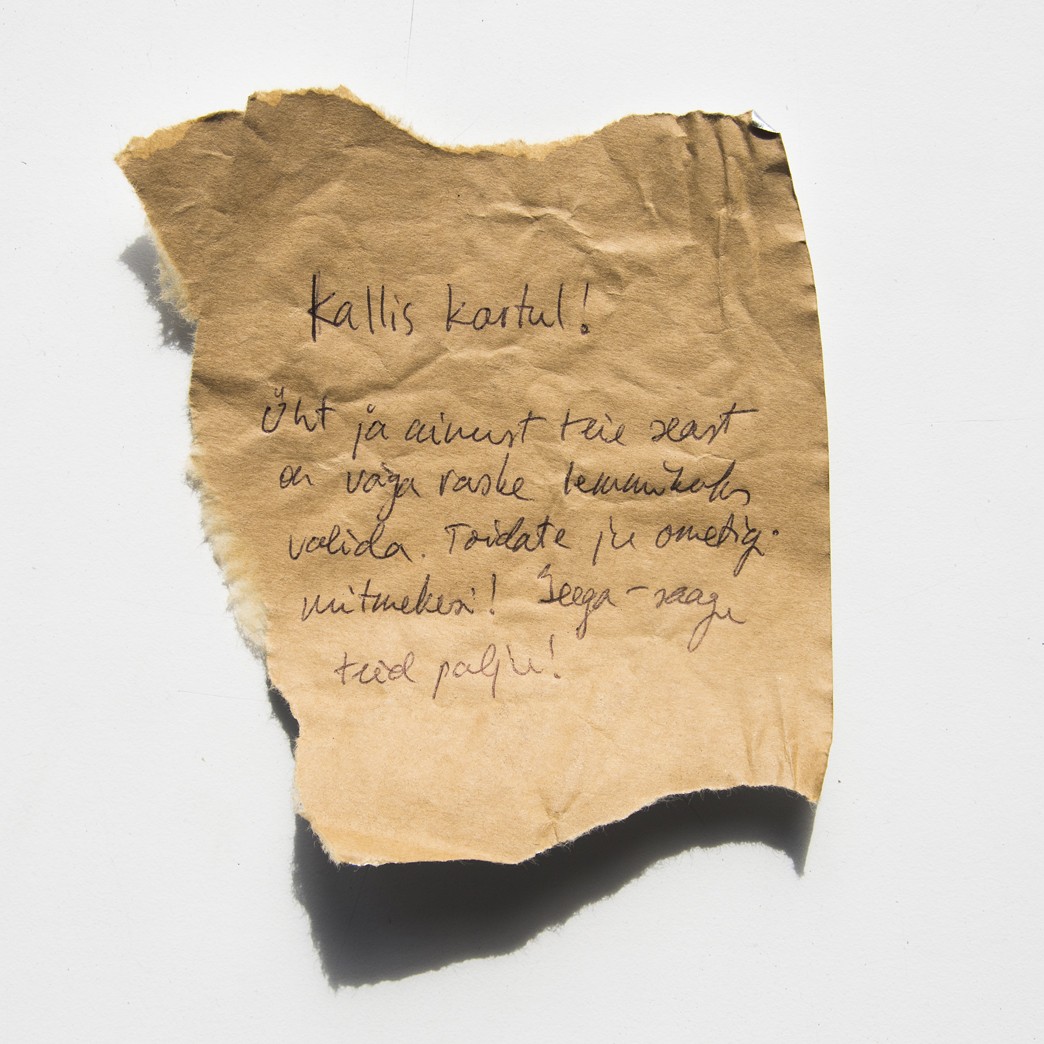 Kallis kartul!
Üht ja ainust teie seast
on väga raske lemmikuks
valida. Toidate ju ometigi
mitmekesi! Seega - saagu
teid palju!